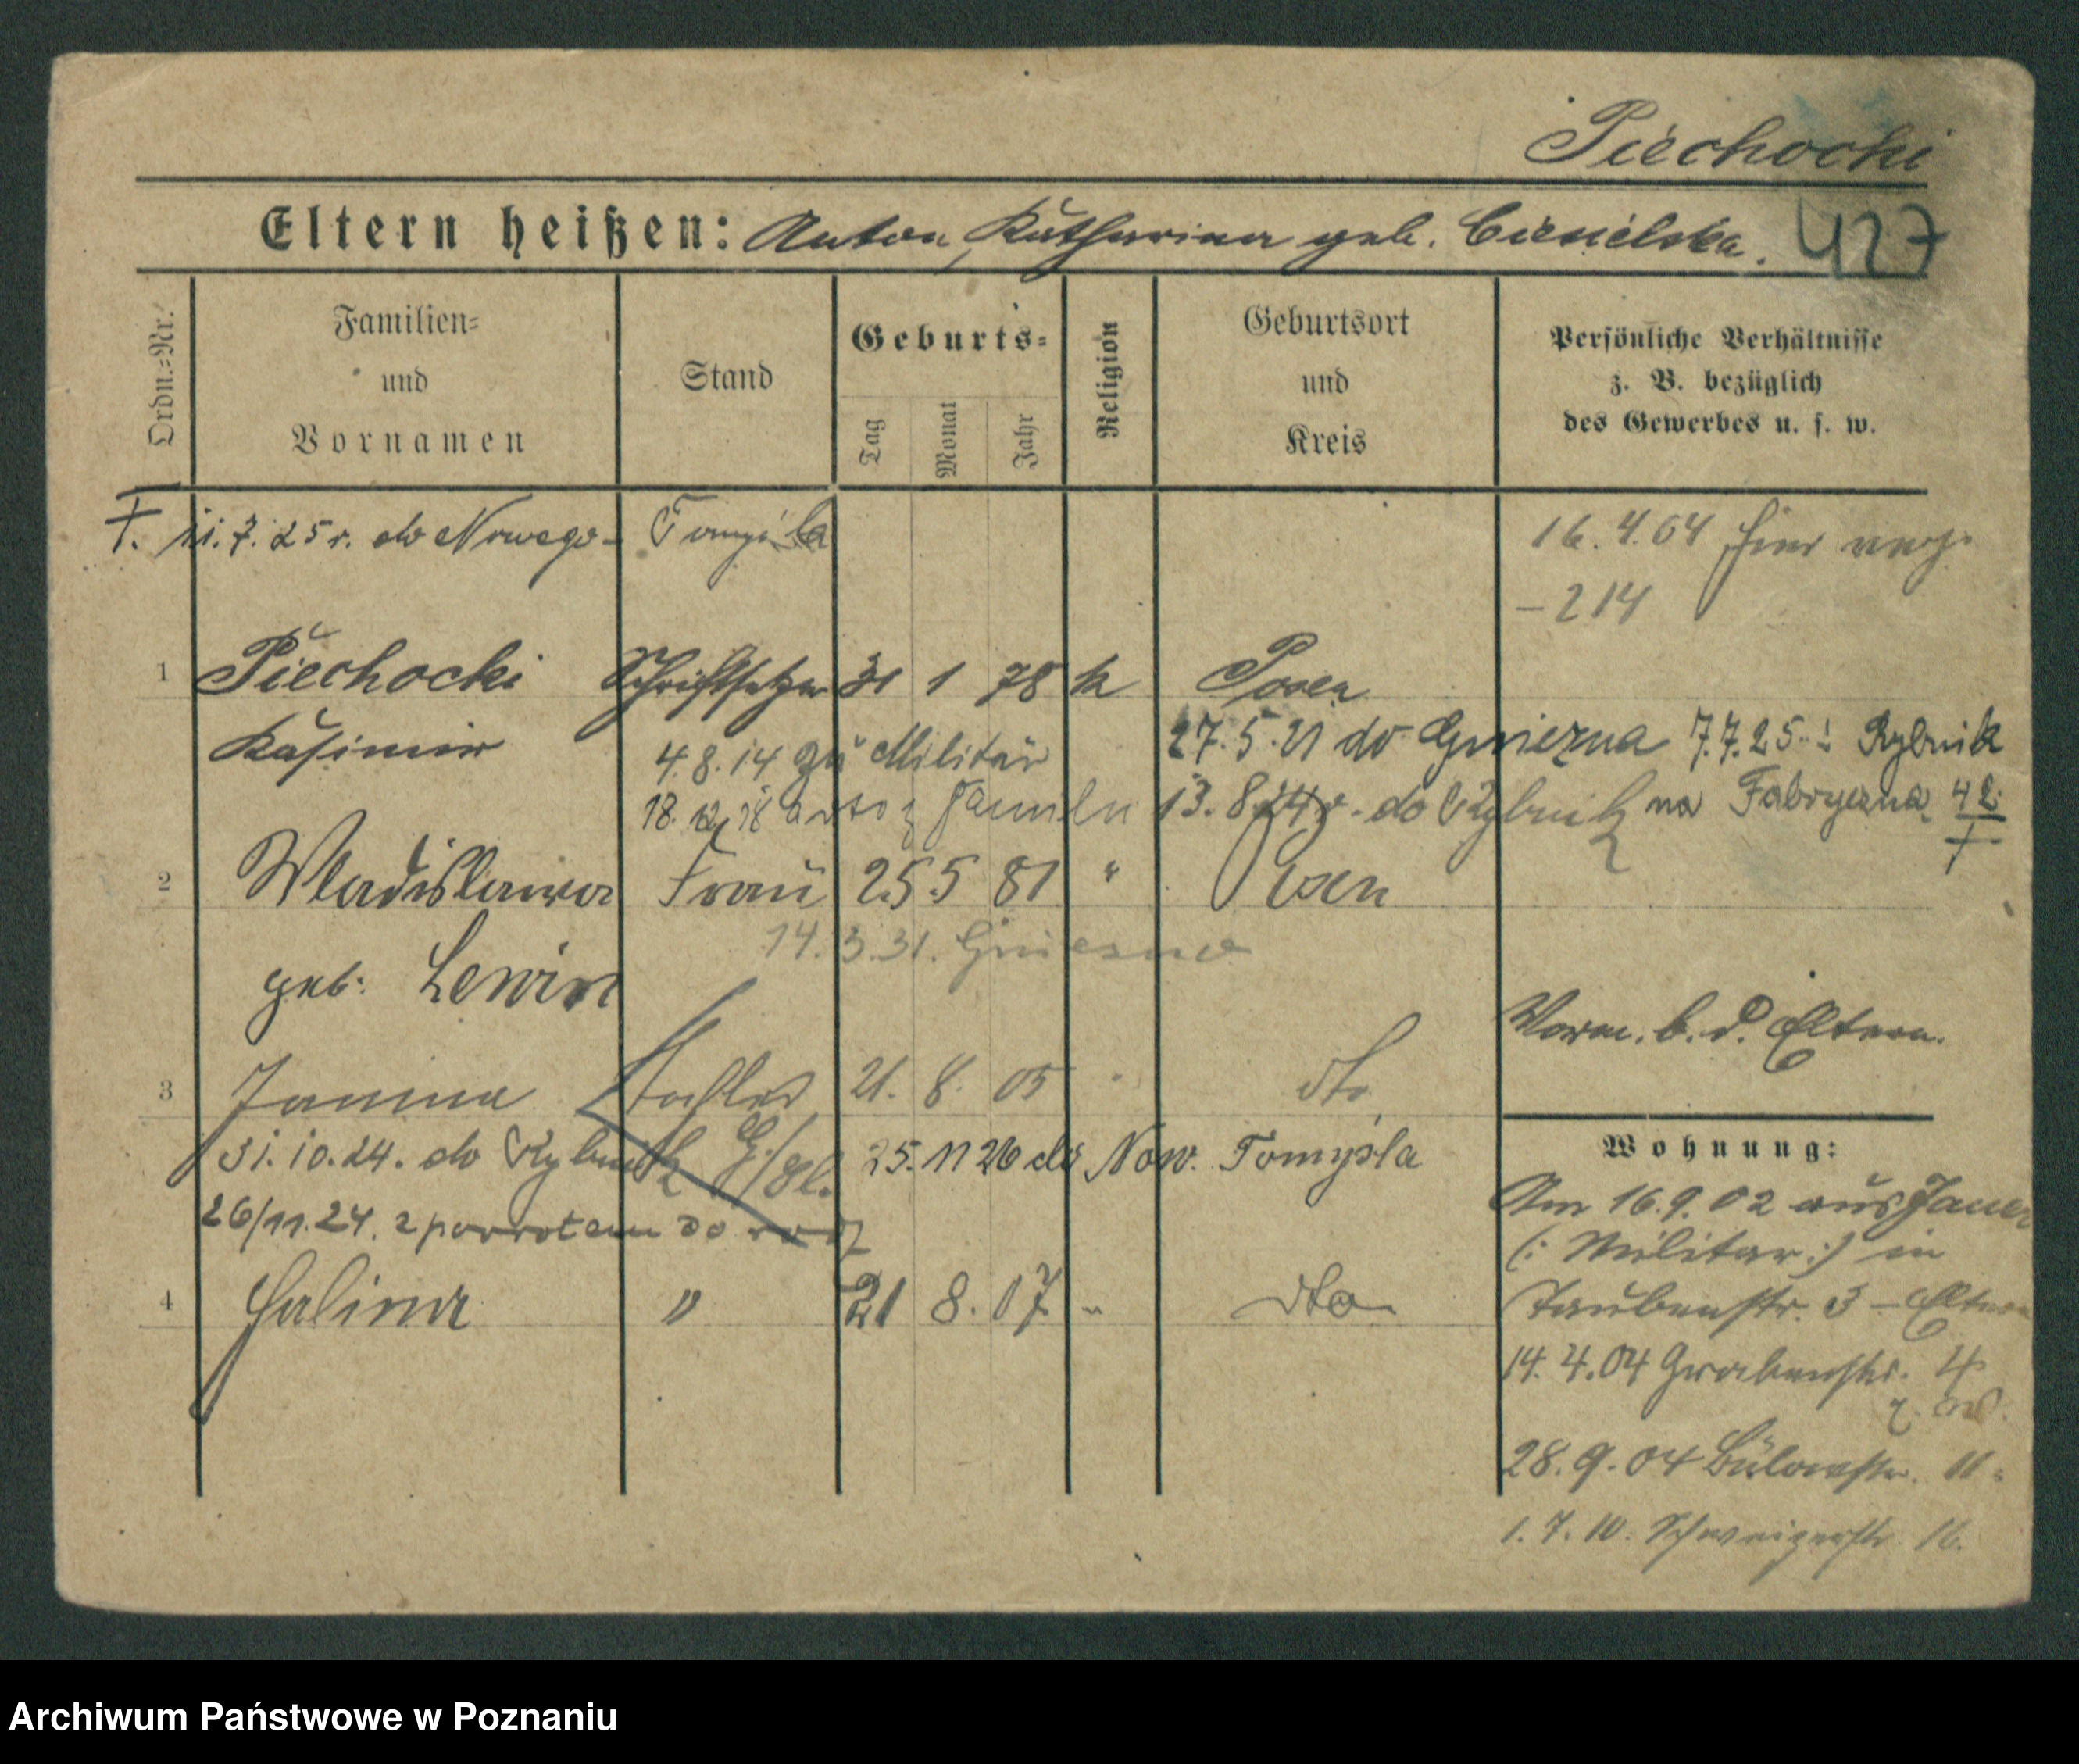 Piechocki
Eltern heißen: Anton, Katharina geb. Ciesielska. 427
Ordn.-Nr.
Familien- und Vornamen
Stand
Geburts-
Tag Monat Jahr
Religion
Geburtsort und Kreis
Persönliche Verhältnisse z. B. bezüglich des Gewerbes u. s. w.
11.7.25 r. do Nowego- Tomyśla
16.4.04 hier
-214
1 Piechocki Schriftsetzer 31 1 78 k Posen
Kasimir
27.5.21 do Gniezna 7.7.25 Rybnik
4.8.14 zu Militär
18.12.18 13.8.24 r. do Rybnik na Fabryczna
2 Wladislawa Frau 25. 5 81 " Posen
14.3.31. Gniezno
geb. Lewin
Vorm. b. d. Eltern.
3 Janina Tochter 21. 8. 05 " dto
31.10.24. do Rybnik G/Sl. 25.11 26 do Now. Tomyśla
26/11.24. z powrotem do
4 Halina " 21 8. 07 " dto
Wohnung:
Am 16.9.02 aus Jauer
(: Militär :) in
Taubenstr. 3 – Eltern
14.4.04 Grabenstr. 4
28.9.04 Bülowstr. 11
1.7.10. Schweizerstr. 16.
Archiwum Państwowe w Poznaniu